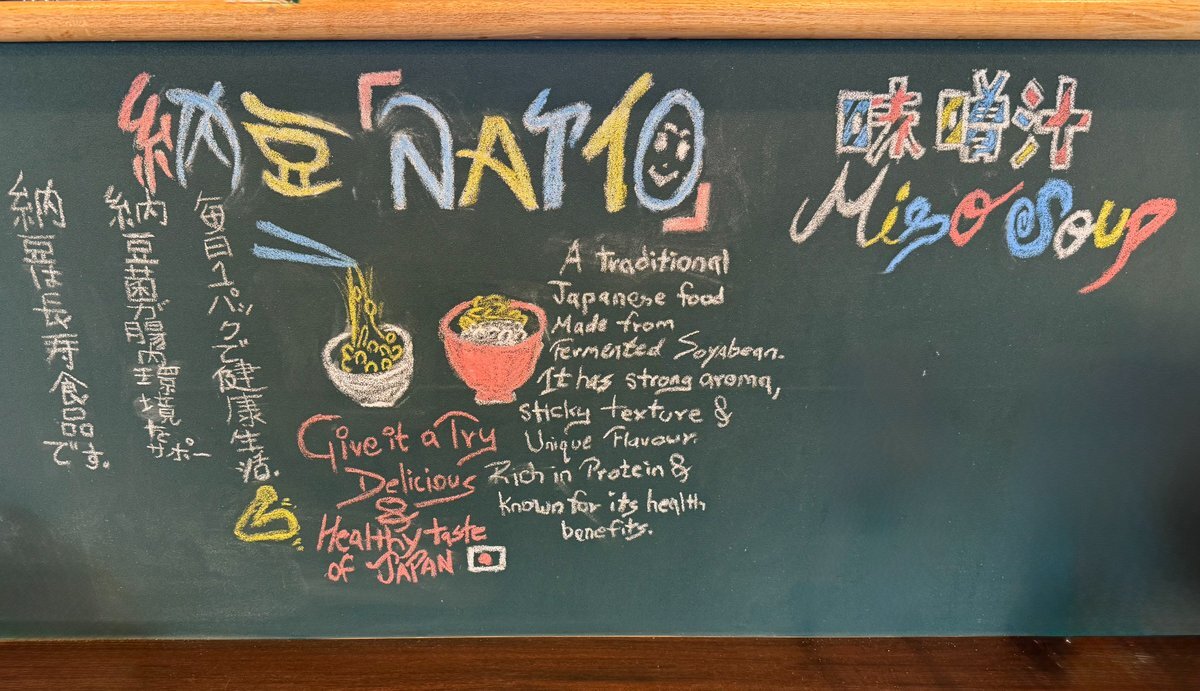 納豆「NATTO」
毎日1パックで健康生活.
納豆菌が腸内環境をサポー
納豆は長寿食品です。
A traditional
Japanese food
Made from
Fermented Soyabean.
It has strong aroma,
sticky texture &
Unique Flavour.
Rich in Protein &
known for its health
benefits.
Give it a Try
Delicious
&
Healthy taste
of JAPAN
味噌汁
Miso Soup